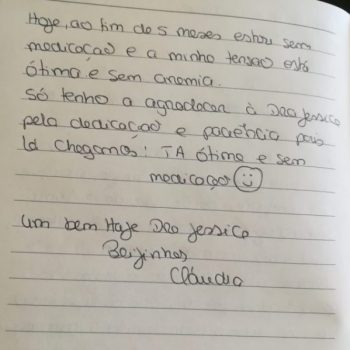 Hoje, ao fim de 5 meses estou sem
medicação e a minha tensão está
ótima e sem anemia.
Só tenho a agradecer à Dra Jessica
pela dedicação e paciência pois
lá chegamos! TA ótima e sem
medicação ☺
Um bem Haja Dra Jessica
Beijinhos
Cláudia